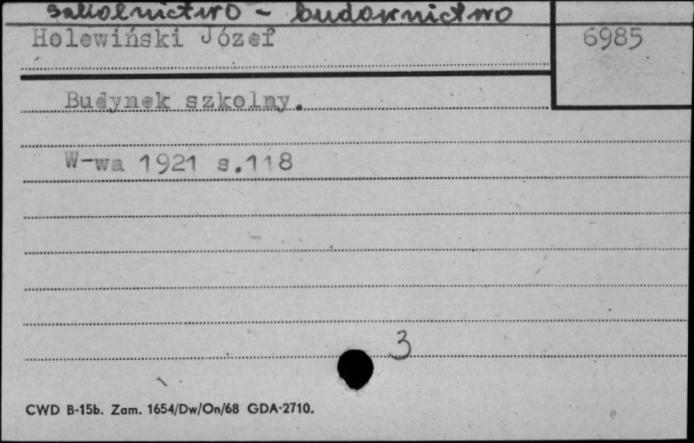 szkolnictwo - budownictwo
Holewiński Józef
6985
Budynek szkolny.
W-wa 1921 s.118
3
CWD B-15b. Zam. 1654/Dw/On/68 GDA-2710.